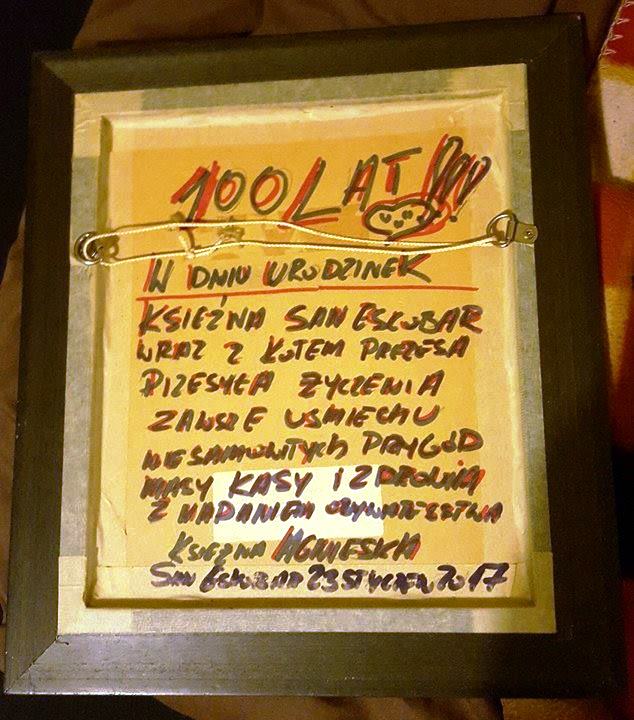 100 LAT!!!
W DNIU URODZINEK
KSIĘŻNA SAN ESCOBAR
WRAZ Z KOTEM PREZESA
PRZESYŁA ŻYCZENIA
ZAWSZE UŚMIECHU
NIESAMOWITYCH PRZYGÓD
MASY KASY I ZDROWIA
Z NADANIEM OBYWATELSTWA
KSIĘŻNA AGNIESKA
SAN ESCOBAR 23 STYCZEŃ 2017